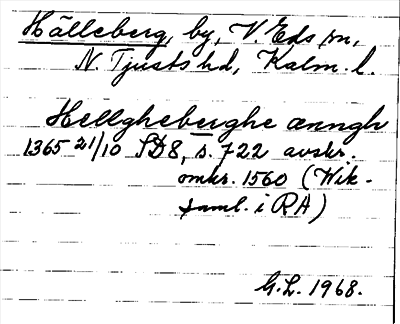 Hälleberg, by, V. Eds sn,
N. Tjusts hd, Kalm. l.
Hellgheberghe ænngh
1365 21/10 SD8, s. 722 avskr.
omkr. 1560 (Wik-
saml. i RA)
G.L. 1968.